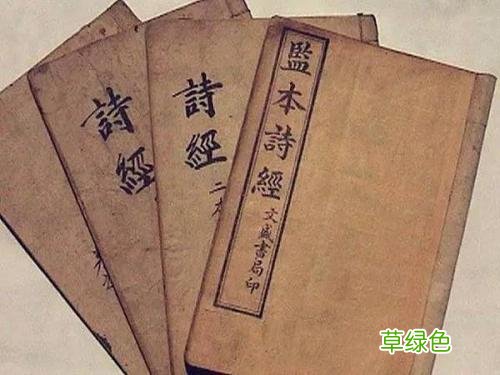 監本詩經
文盛書局印
詩經
二本
詩經
草绿色